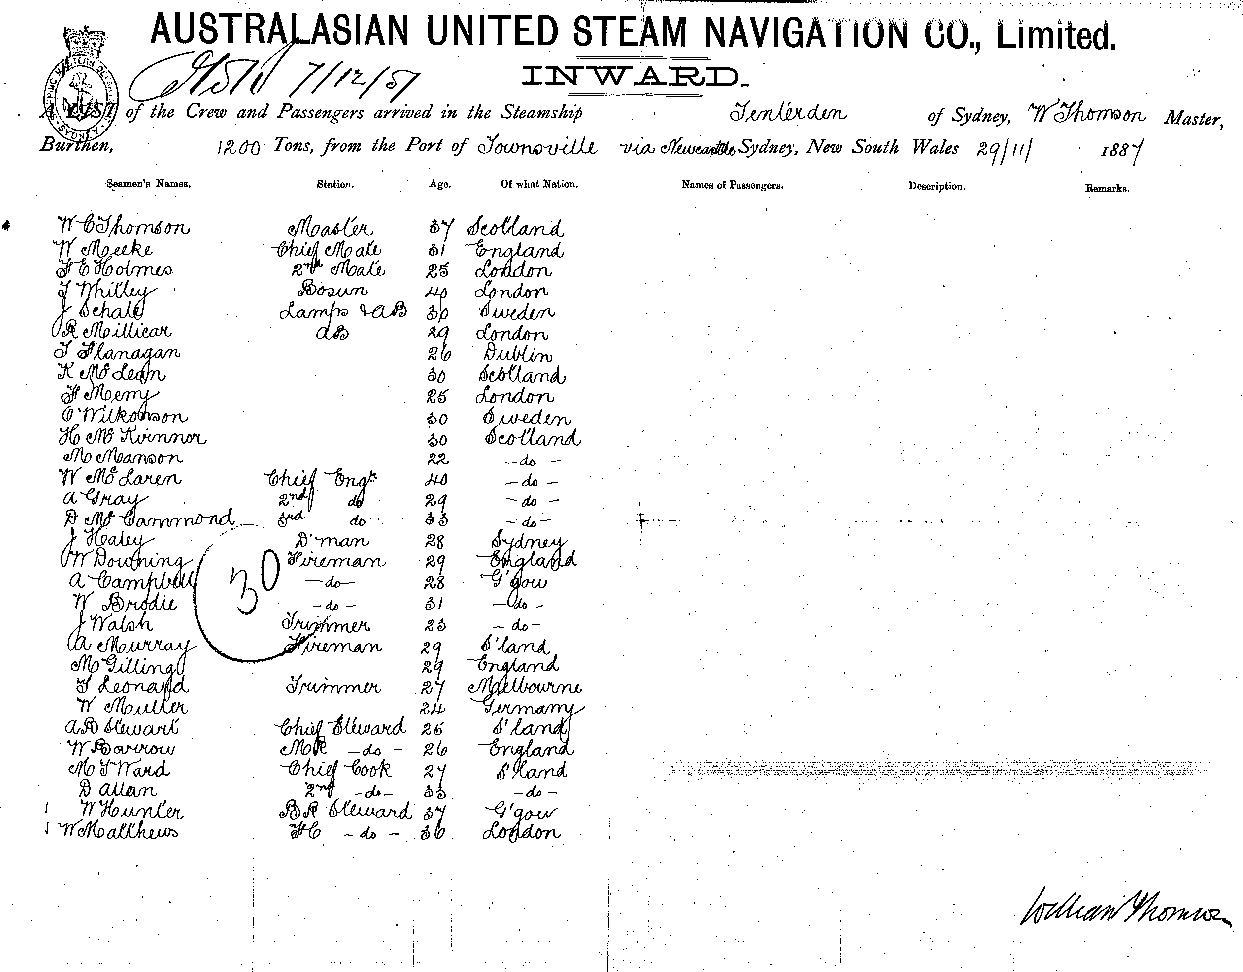 AUSTRALASIAN UNITED STEAM NAVIGATION CO., Limited.
7/12/87 INWARD.
A LIST of the Crew and Passengers arrived in the Steamship Tenterden of Sydney, W Thomson Master,
Burthen, 1200 Tons, from the Port of Townsville via Newcastle Sydney, New South Wales 29/11/ 1887
Seamen's Names. Station. Age. Of what Nation. Names of Passengers. Description. Remarks.
W C Thomson Master 37 Scotland
W Meeke Chief Mate 31 England
F E Holmes 2nd Mate 25 London
T Whitley Bosun 40 London
J Schale Lamps & AB 30 Sweden
R Millicar AB 29 London
T Flanagan 26 Dublin
K McLean 30 Scotland
F Merry 25 London
O Wilkomson 30 Sweden
H McKinnor 30 Scotland
M Manson 22 - do -
W McLaren Chief Engr 40 - do -
A Gray 2nd do 29 - do -
D McCammond 3rd do 33 - do -
J Haley D'man 28 Sydney
W Downing Fireman 29 England
A Campbell - do - 28 G'gow
30
W Brodie - do - 31 - do -
J Walsh Trimmer 23 - do -
A Murray Fireman 29 S'land
M Gilling 29 England
T Leonard Trimmer 27 Melbourne
W Muller 24 Germany
A R Stewart Chief Steward 25 S'land
W Barrow - do - 26 England
M J Ward Chief Cook 27 S'land
D Allan 2nd - do - 33 - do -
1 W Hunter BR Steward 37 G'gow
1 W Matthews FC - do - 36 London
William Thomson